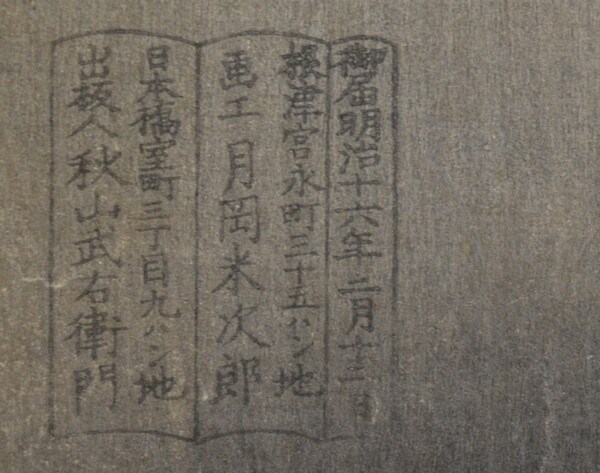 御届明治十六年二月十二日
根津宮永町三十五ハン地
画工月岡米次郎
日本橋室町三丁目九ハン地
出板人秋山武右衛門